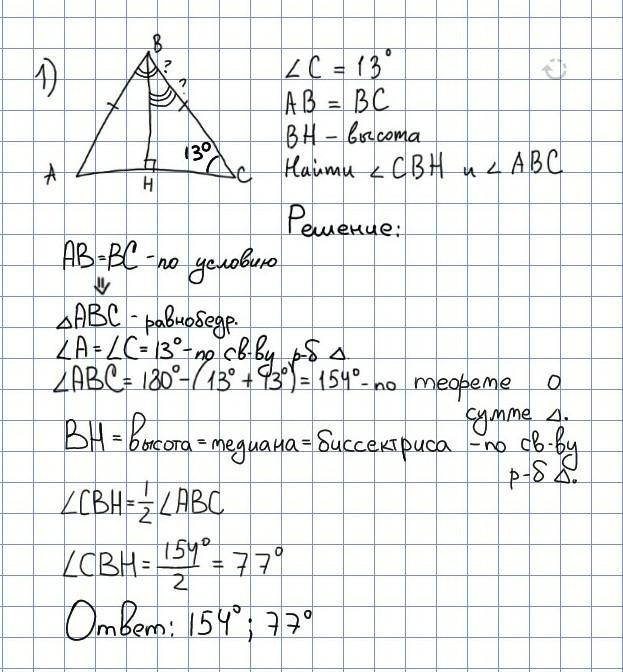 1)
B
?
?
13°
A
H
C
∠C = 13°
AB = BC
BH - высота
Найти ∠CBH и ∠ABC
Решение:
AB=BC - по условию
⇓
△ABC - равнобедр.
∠A=∠C=13° - по св-ву р-б △
∠ABC = 180° - (13° + 13°) = 154° - по теореме о
сумме △.
BH = высота = медиана = биссектриса - по св-ву
р-б △.
∠CBH = 1/2 ∠ABC
∠CBH = 154°/2 = 77°
Ответ: 154°; 77°